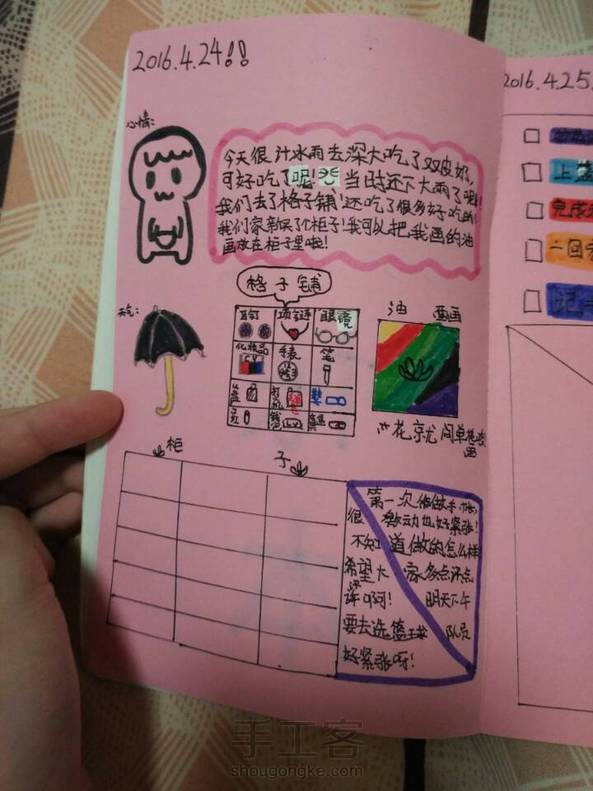 2016.4.24!!
心情:
今天很 冰雨去深大吃了双皮奶,
可好吃了呢! 当时还下大雨了呢!
我们去了格子铺!还吃了很多好吃的!
我们家新买了个柜子!我可以把我画的油
画放在柜子里啦!
格子铺
天气:
耳钉 项链 眼镜
化妆品 手表 笔
油 画
花 京尤 简单
画
柜 子
第一次 做手帐,
很 激动也好紧张!
不知 道做的怎么样
希望大 家多点评点
评 啊! 明天下午
要去选篮球 队员
好紧张呀!
2016.4.25
上
完成
二回
手工客
shougongke.com